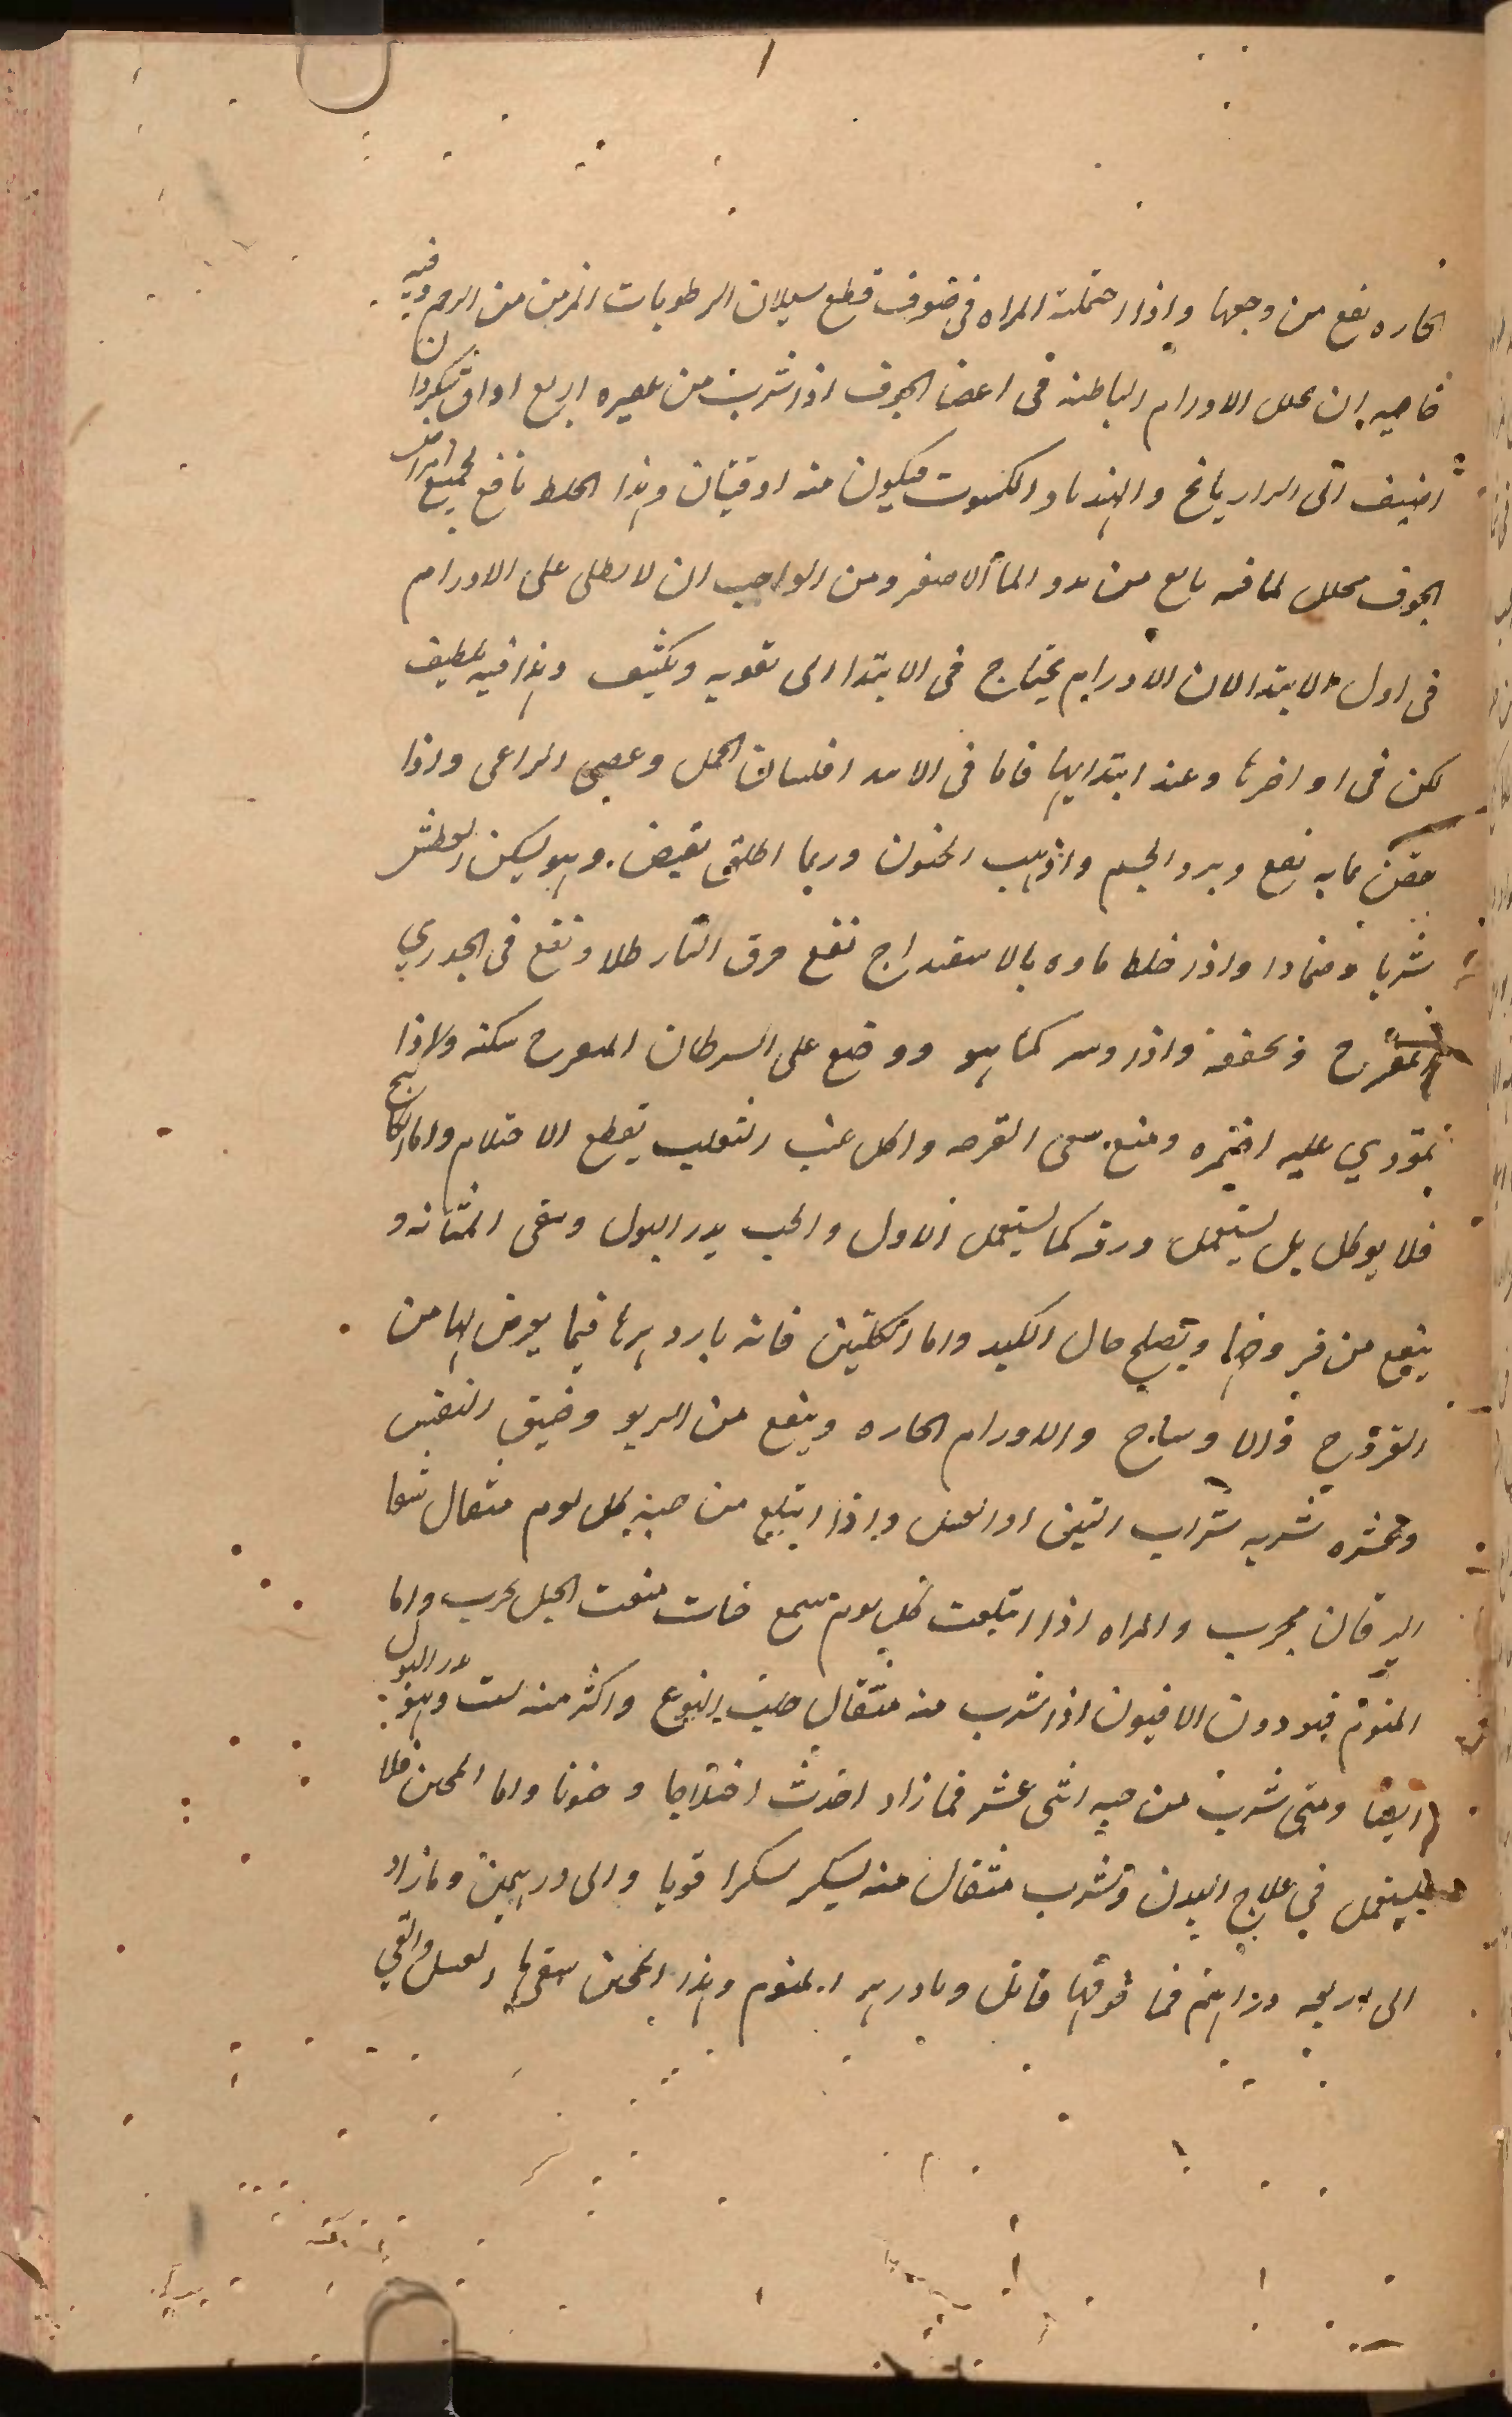 الحاره نفع من وجعها واذا احتملته المراه فى صوف قطع سيلان الرطوبات المزمن من الرحم وفيه
خاصيه ان يحلل الاورام الباطنه فى اعضا الجوف اذا شرب من عصيره اربع اواق بسكر وان
اضيف الى الرازيانج والهندبا والكشوت فيكون منه اوقيتان وهذا الخلط نافع لجميع امراض
الجوف محلل لما فيه نافع من بدو الما الاصفر ومن الواجب ان لا يطلى على الاورام
فى اول الابتدا لان الاورام يحتاج فى الابتدا الى تقويه وتكثيف وهذا فيه تلطيف
لكن فى اواخرها وعند ابتدايها فاما فى الابتدا فلسان الحمل وعصى الراعى واذا
حقن بمايه نفع وبرد الجسم واذهب الجنون وربما اطلق بقبض وهو يسكن العطش
شربا وضمادا واذا خلط ماوه بالاسفيداج نفع حرق النار طلا ونفع فى الجدري
المتقرح وتجففه واذا دس كما هو ووضع على السرطان المتقرح سكنه ولاذا
تمودي عليه اضمره ومنع سعى القرحه واكل عنب الثعلب يقطع الاحتلام واما الكاكنج
فلا يوكل بل يستعمل ورقه كما يستعمل الاول والحب يدر البول وينقى المثانه و
ينفع من قروحها ويصلح حال الكبد واما الكليتين فانه بارد يبرها فيما يعرض لها من
القروح والاوساخ والاورام الحاره وينفع من الربو وضيق النفس
شربه شراب التين او العسل واذا ابتلع من حبه كل يوم مثقال شفا
اليرقان مجرب والمراه اذا ابتلعت كل يوم سبع حبات منعت الحبل مجرب واما
المنوم فهو دون الافيون اذا شرب منه مثقال جلب النوع واكثر منه سبت وهو يدر البول
ايضا ومتى شرب من حبه اثنى عشر فما زاد احدث اختلاجا وجنونا واما المجنن فلا
يستعمل في علاج البدن وشرب مثقال منه يسكر سكرا قويا والى درهمين وما زاد
الى اربعه دراهم فما فوقها قاتل وبادزهر المنوم وهذا المجنن سقى ما العسل والقي